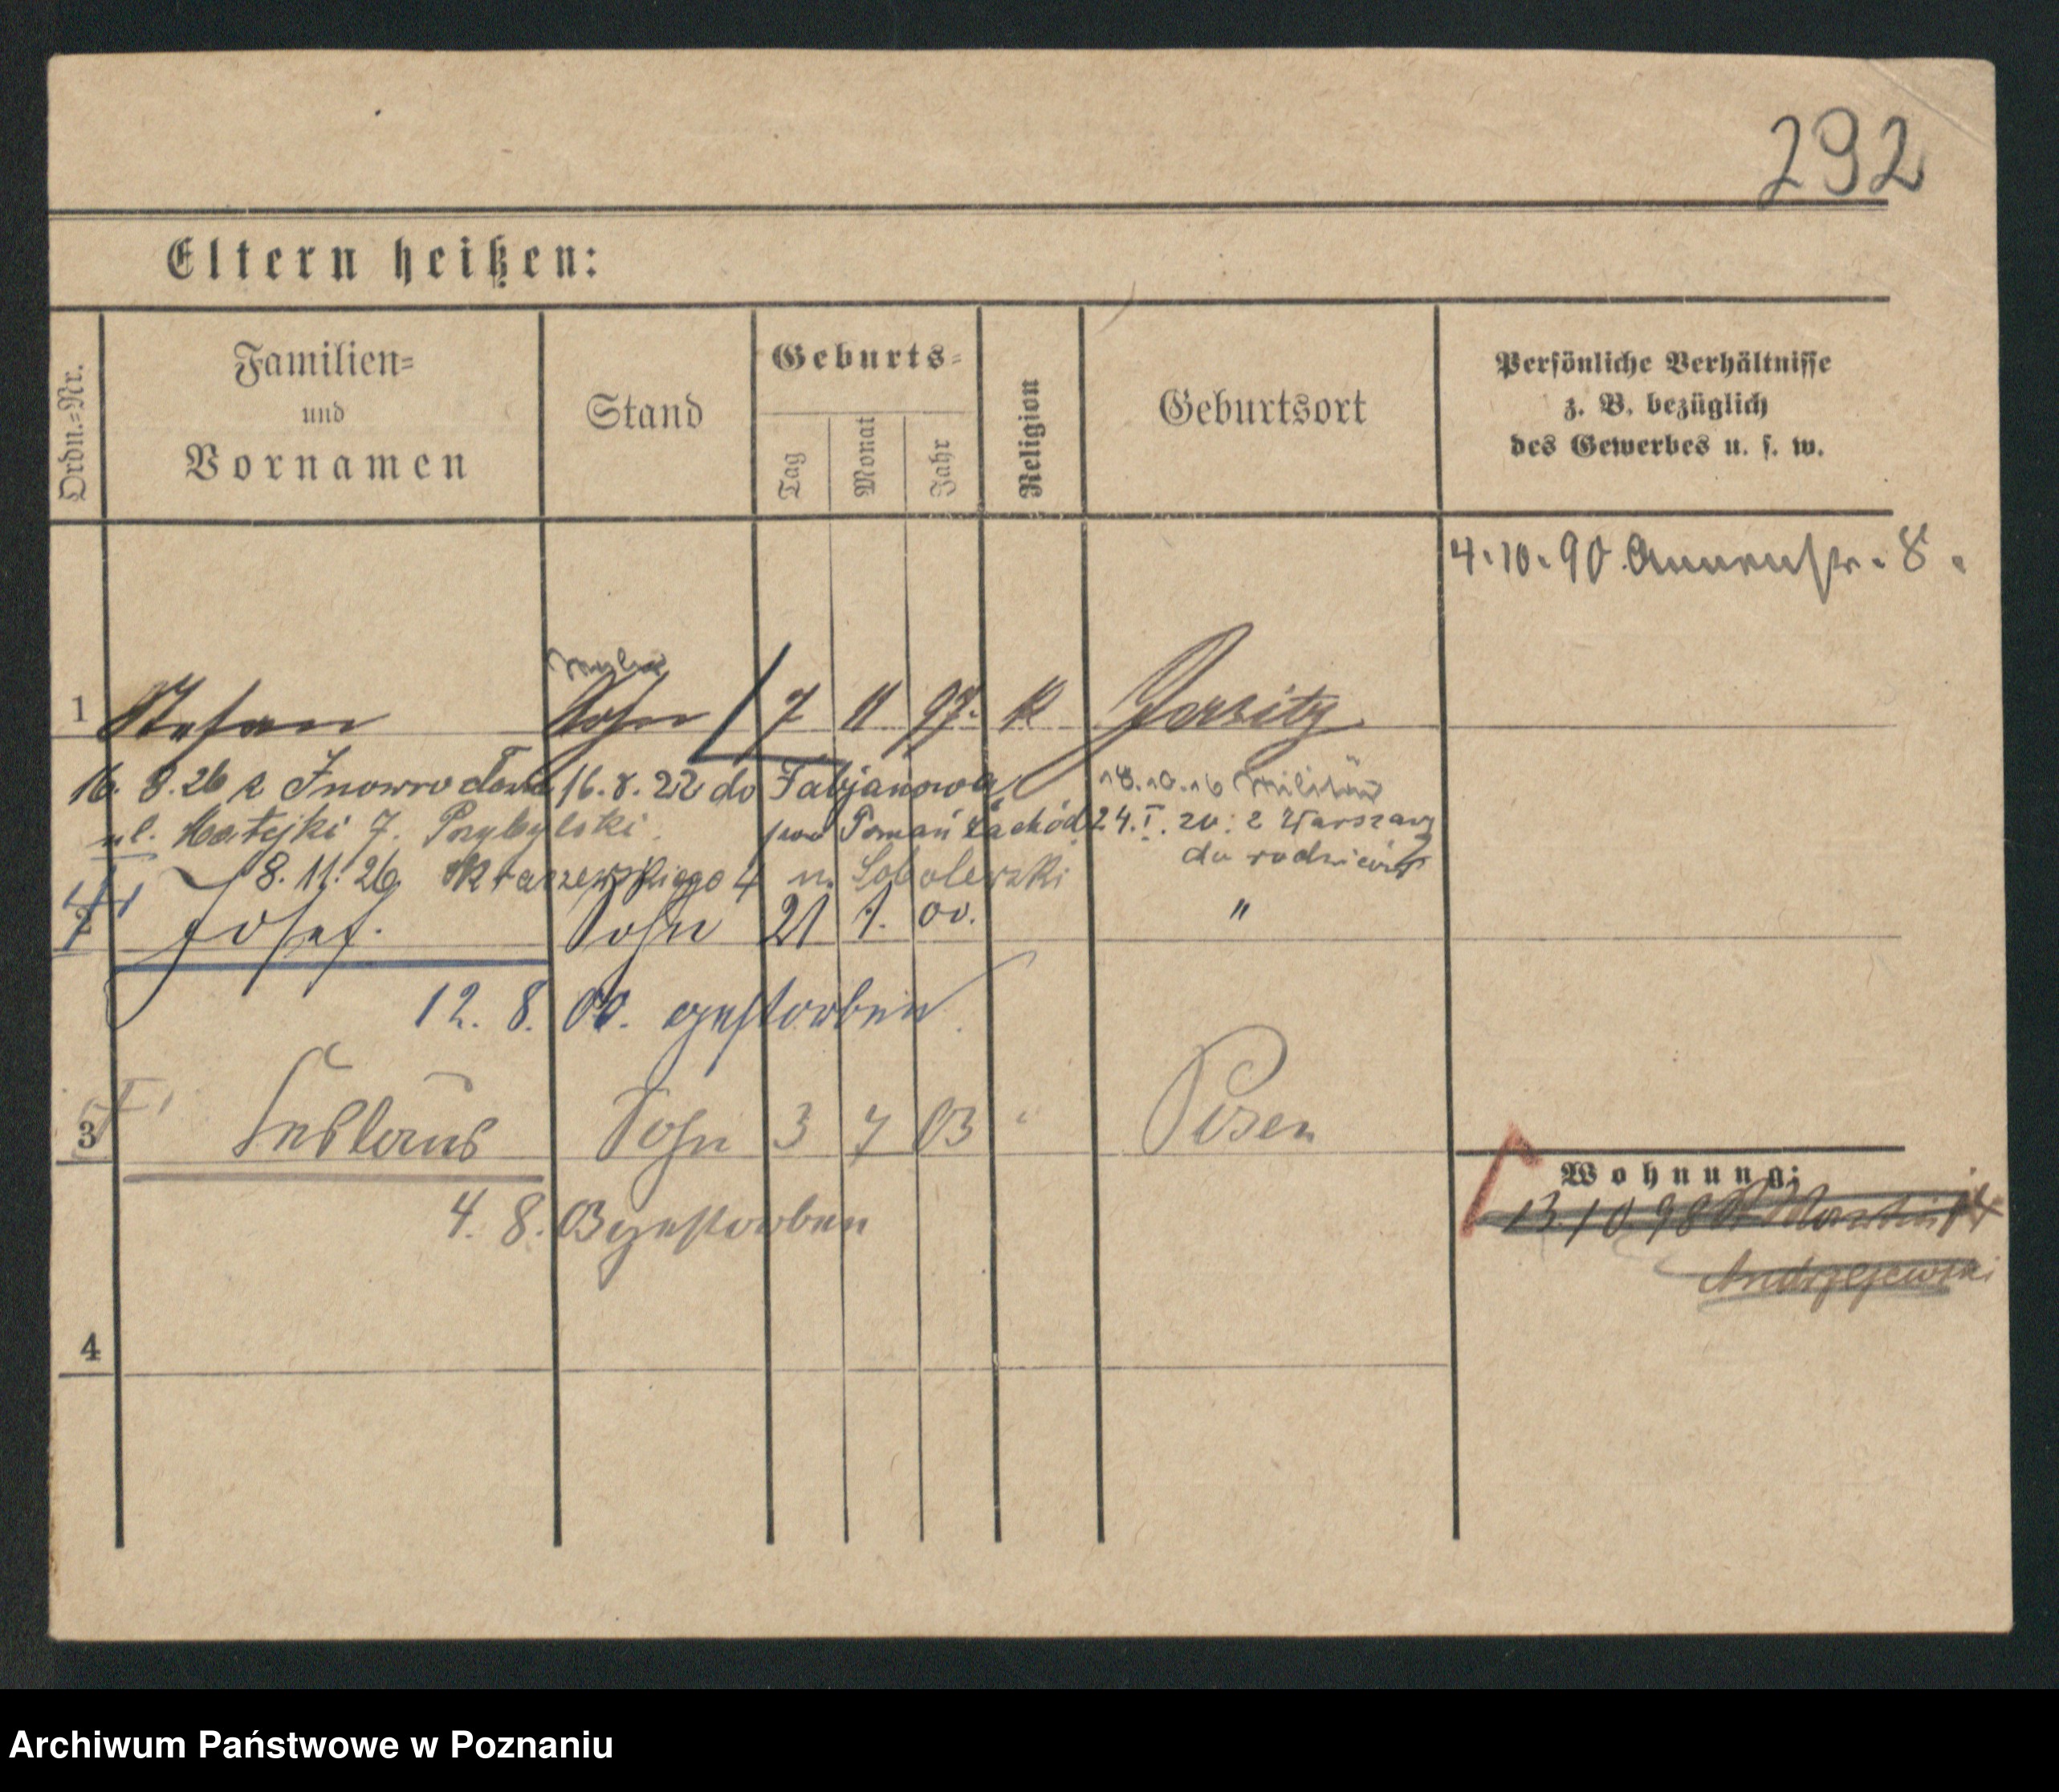 292
Eltern heißen:
Ordn.=Nr.
Familien=
und
Vornamen
Stand
Geburts=
Tag
Monat
Jahr
Religion
Geburtsort
Persönliche Verhältnisse
z. B. bezüglich
des Gewerbes u. s. w.
4.10.90. Annenstr. 8.
1 Stefan Sohn 7 11 97. k Jersitz
16. 8. 26 z Inowrocławia 16. 8. 22 do Fabjanowa 18.10.16 Militär
ul. Matejki 7. Przybylski. Poznań Zachód 24. I. 20. z Warszawy
do rodziców
8. 11. 26 Kraszewskiego 4 u. Sobolewski
2 Josef. Sohn 21 1. 00. "
12. 8. 00. gestorben
3 Sohn 3 7 03 " Posen
4. 8. 03 gestorben
Wohnung:
13.10.98 St Martin
Andrzejewski
4
Archiwum Państwowe w Poznaniu